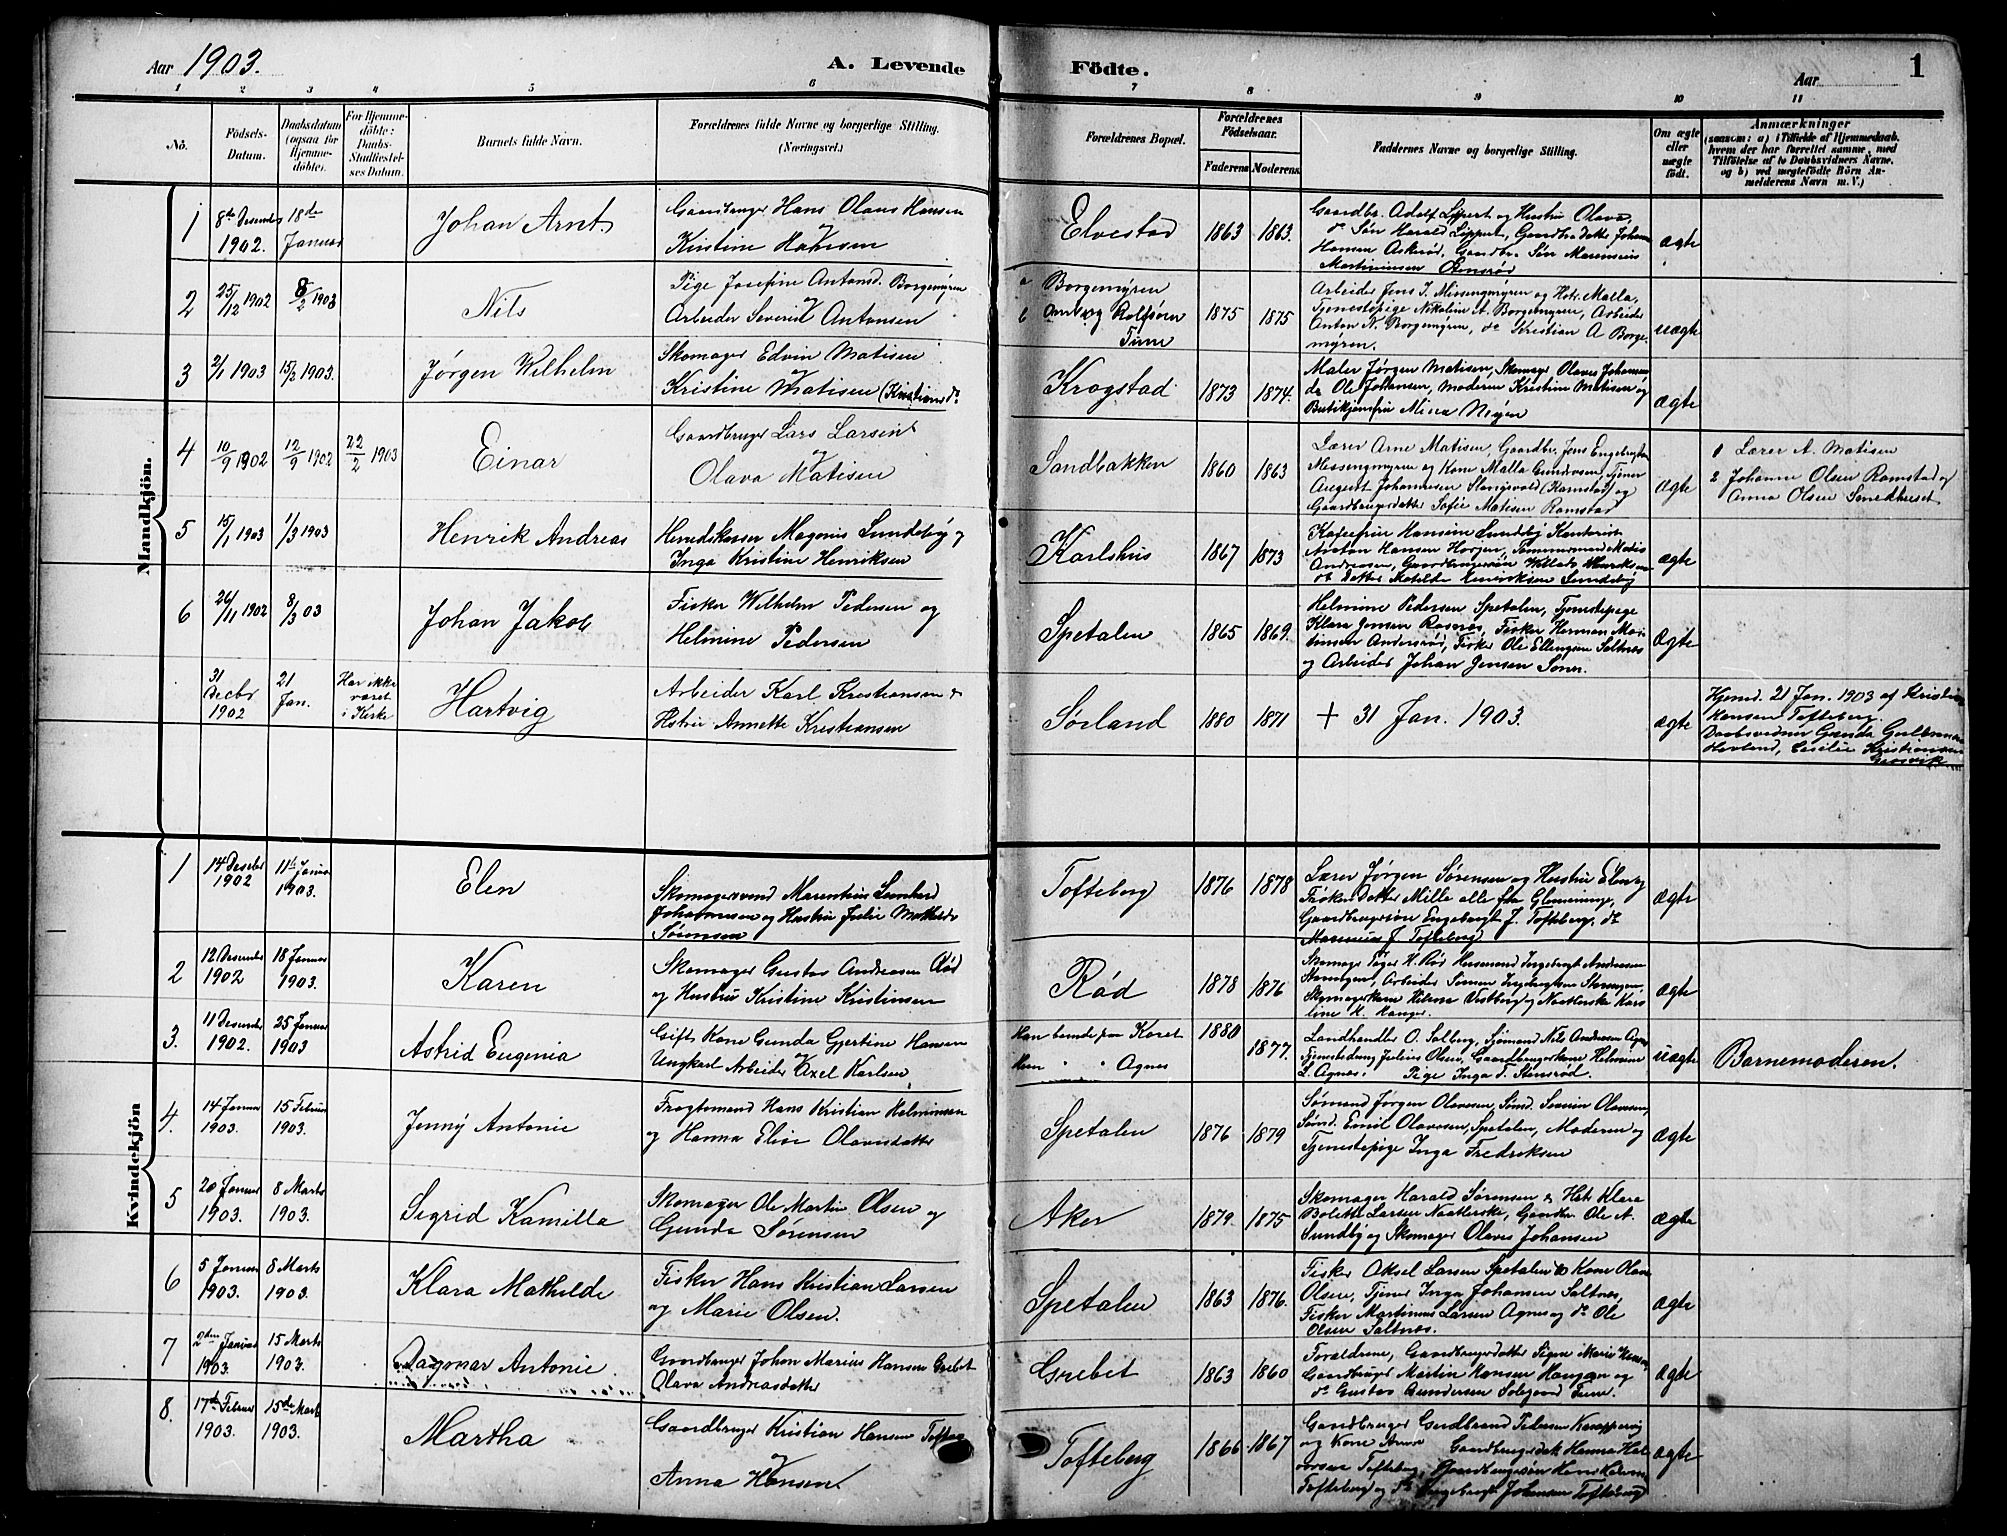 Aar 1903.
A. Levende
1 2 3 4 5 6
No.
Födsels-
Datum.
Daabsdatum
(ogsaa for
Hjemme-
döbte).
For Hjemme-
döbte:
Daabs-
Stadfæstel-
ses Datum.
Barnets fulde Navn.
Forældrenes fulde Navne og borgerlige Stilling.
(Næringsvei.)
Mandkjön.
1
8de Desember
1902.
18de
Januar
Johan Arnt
Gaardbruger Hans Olaus Hansen
Kristine Hansen
2
25/12 1902
8/2 1903
Nils
Pige Josefine Antonsd. Borgemyren
Arbeider Severin Antonsen
3
2/1 1903
15/2 1903.
Jørgen Wilhelm
Skomager Edvin Matisen
Kristine Matisen
4
10/9 1902
12/9 1902
22/2 1903
Einar
Gaardbruger Lars Larsen
Olava Matisen
5
15/1 1903
1/3 1903
Henrik Andreas
Herredskasser Magnus Lundeby og
Inga Kristine Henriksen
6
26/11 1902
8/3 03
Johan Jakob
Fisker Wilhelm Pedersen og
Helmine Pedersen
31
Decbr
1902
21
Jan.
Har ikke
været
i Kirke
Hartvig
Arbeider Karl Kristiansen &
Hstru Annette Kristiansen
Kvindekjön
1
14 Desebr
1902
11te Januar
1903.
Elen
Skomagersvend Marentius Leonhard
Johannesen og Hustru Julie Mathilde
Sørensen
2
12 Desember
1902
18 Januar
1903.
Karen
Skomager Gustav Andreasen Rød
og Hustru Kristine Kristinsen
3.
11 Desember
1902.
25 Januar
1903
Astrid Eugenia
Gift Kone Gunda Gjertine Hansen
Ungkarl Arbeider Axel Karlsen
4.
14 Januar
1903.
15 Februar
1903.
Jenny Antonie
Fragtemand Hans Kristian Helminsen
og Hanna Elise Olavsdatter
5
20 Januar
1903.
8 Marts
1903.
Sigrid Kamilla
Skomager Ole Martin Olsen og
Gunda Sørensen
6
5 Januar
1903.
8 Marts
1903.
Klara Mathilde
Fisker Hans Kristian Larsen
og Marie Olsen.
7
2den Januar
1903.
15 Marts
1903.
Dagmar Antonie
Gaardbruger Johan Marius Hansen Grebet
Olava Andreasdatter
8.
17de Februar
1903.
15de Marts
1903.
Martha
Gaardbruger Kristian Hansen
Anna Hansen
Födte.
Aar
1
7 8 9 10 11
Forældrenes Bopæl.
Forældrenes
Födselsaar.
Faderens
Moderens
Faddernes Navne og borgerlige Stilling.
Om ægte
eller
uægte
födt.
Anmærkninger
(saasom: a) i Tilfælde af Hjemmedaab,
hvem der har forrettet samme, med
Tilföielse af to Daabsvidners Navne,
og b) ved uægtefödte Börn An-
melderens Navn m. V.)
Elvestad
1863
1863.
Gaardbr. Adolf Lippert og Hustru Olava,
do Søn Harald Lippert, Gaardbr. datter
Hansen Askerød, Gaardbr. Søn
Martiniusen
ægte
a Borgemyren
b Rolfsøen
Tune
1875
1875
Arbeider Jens J. Missengmyren og Hstr. Malla,
Tjenestepige Nikoline A. Borgemyren, Arbeider
Anton N. Borgemyren, do Kristian A Borge-
myren.
uægte
Krogstad
1873
1874.
Maler Jørgen Matisen, Skomager Olaves Johannesen
do Ole Johansen, Moderen Kristine Matisen og
Mina
ægte
Sandbakken
1860
1863
Lærer Arne Matisen, Gaardbr. Jens Engebrigtsen
Missengmyren og Kone Malla Gundersen, Tjener
August Johannesen Slangsvold (Ramstad) og
Gaardbrugerdatter Sofie Matisen Ramstad
ægte
1 Lærer A. Matisen
2 Johanne Olsen Ramstad og
Anna Olsen Smedhuset
Karlshus
1867
1873
Hansine Lundeby
Hansen
Andreasen, Gaardbrugersøn
do Datter Matilde Henriksen Lundeby
ægte
Spetalen
1865
1869.
Helmine Pedersen Spetalen, Tjenestepige
Klara Jensen Rosnes, Fisker Herman Mar-
tinsen Andersrød, Fisker Ole Ellingsen Saltnes
og Arbeider Johan Jensen
ægte
Sørland
1880
1871
+ 31 Jan. 1903.
ægte
Hjemd. 21 Jan. 1903 af Kristian
Hansen Tofteberg.
Daabsvidner Gunda
Hovland, Cecilie Kristiansen
Tofteberg
1876
1878
Lærer Jørgen Sørensen og Hustru Elen og
Frøken Datter Mille alle fra Glemminge,
Gaardbrugersøn Engebregt J. Tofteberg, do
Marenius J. Tofteberg
ægte
Rød
1878
1876
H. Rød Husmand Ingebregt Andreasen
Arbeider Simen
Skomagerkone Hilma Vestberg og
line H. Hauger.
ægte
Han bende paa Koret
Hun " " Agnes
1880
1877
Landhandler O. Solberg, Sjømand Nils Andersen Agnes
Julius Olsen, Gaardbrugerkone Helmine
L. Agnes. Pige Inga T. Stensrød.
uægte
Barnemoderen.
Spetalen
1876
1879
Sømand Jørgen Olavesen, Sømd. Severin Olavesen,
Sømd. Emil Olavesen, Spetalen, Moderen og
Tjenestepige Inga Fredriksen
ægte
Aker
1879.
1875
Skomager Harald Sørensen & Hst. Klara
Bolette Larsen, Gaardbr. Ole A.
Sundby og Skomager Olaves Johansen
ægte
Spetalen
1863
1876.
Fisker Aksel Larsen Spetalen & Kone Olava
Olsen, Tjener Inga Johansen Saltnes,
Fisker Martinius Larsen Agnes og do Ole
Olsen Saltnes.
ægte
Grebet
1863
1860
Forældrene, Gaardbrugerdatter Signe Marie Hansen
Gaardbruger Martin Hansen Haugen og
do Gustav Gundersen Solgaard Tune.
ægte
Tofteberg
1866
1867
Gaardbruger Gudbrand Pedersen
og Kone Anna Gaardbrugerdat. Hanna Hal-
vorsen Tofteberg, Gaardbrugersøn Hans
Tofteberg og do Ingebregt Johansen Tofteberg
ægte